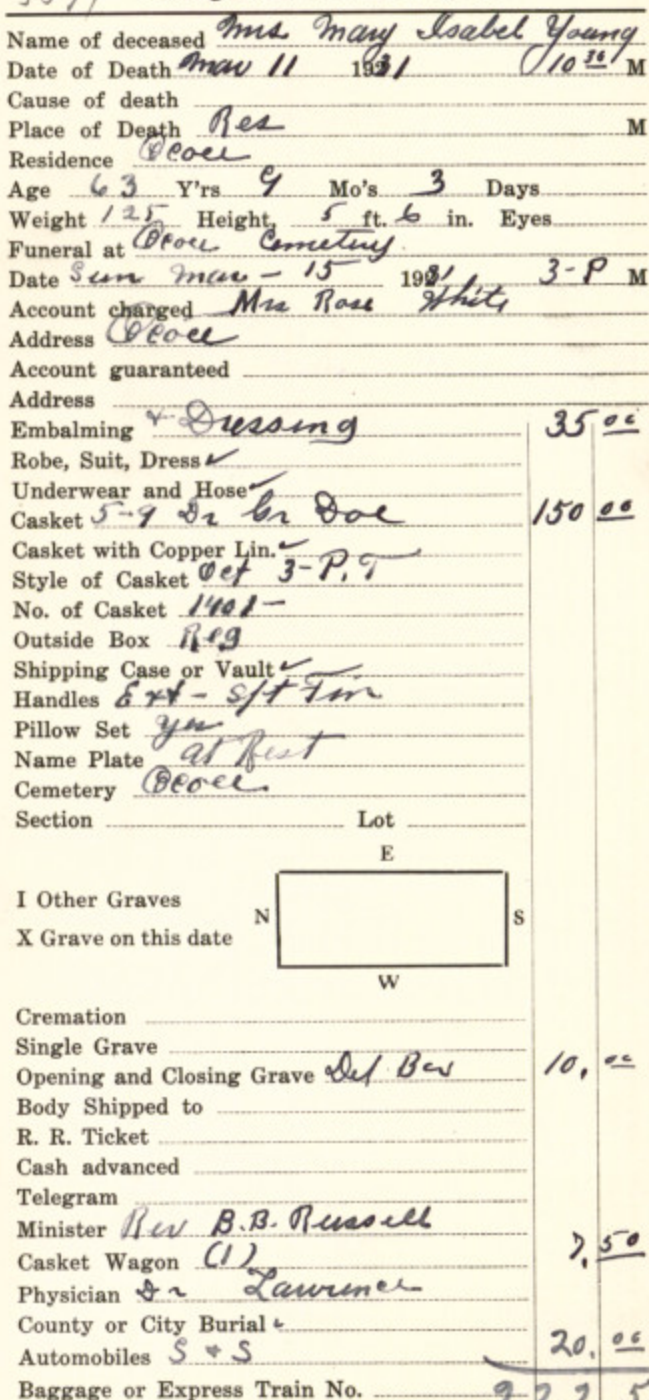 Name of deceased Mrs Mary Isabel Young
Date of Death Mar 11 1931 10 30 M
Cause of death
Place of Death Res M
Residence Ocoee
Age 63 Y'rs 9 Mo's 3 Days
Weight 125 Height 5 ft. 6 in. Eyes
Funeral at Ocoee Cemetery
Date Sun Mar - 15 1931 3-P M
Account charged Mrs Rose White
Address Ocoee
Account guaranteed
Address
Embalming & Dressing 35 00
Robe, Suit, Dress ✓
Underwear and Hose ✓
Casket 5-9 Dr Gr Doe 150 00
Casket with Copper Lin. ✓
Style of Casket Oct 3-P. T
No. of Casket 1401-
Outside Box Reg
Shipping Case or Vault ✓
Handles Ext -
Pillow Set yes
Name Plate at Rest
Cemetery Ocoee
Section Lot
E
I Other Graves
N S
X Grave on this date
W
Cremation
Single Grave
Opening and Closing Grave Del Box 10. 00
Body Shipped to
R. R. Ticket
Cash advanced
Telegram
Minister Rev B.B. Russell
Casket Wagon (1) 7. 50
Physician Dr Lawrence
County or City Burial
Automobiles S & S 20. 00
Baggage or Express Train No.